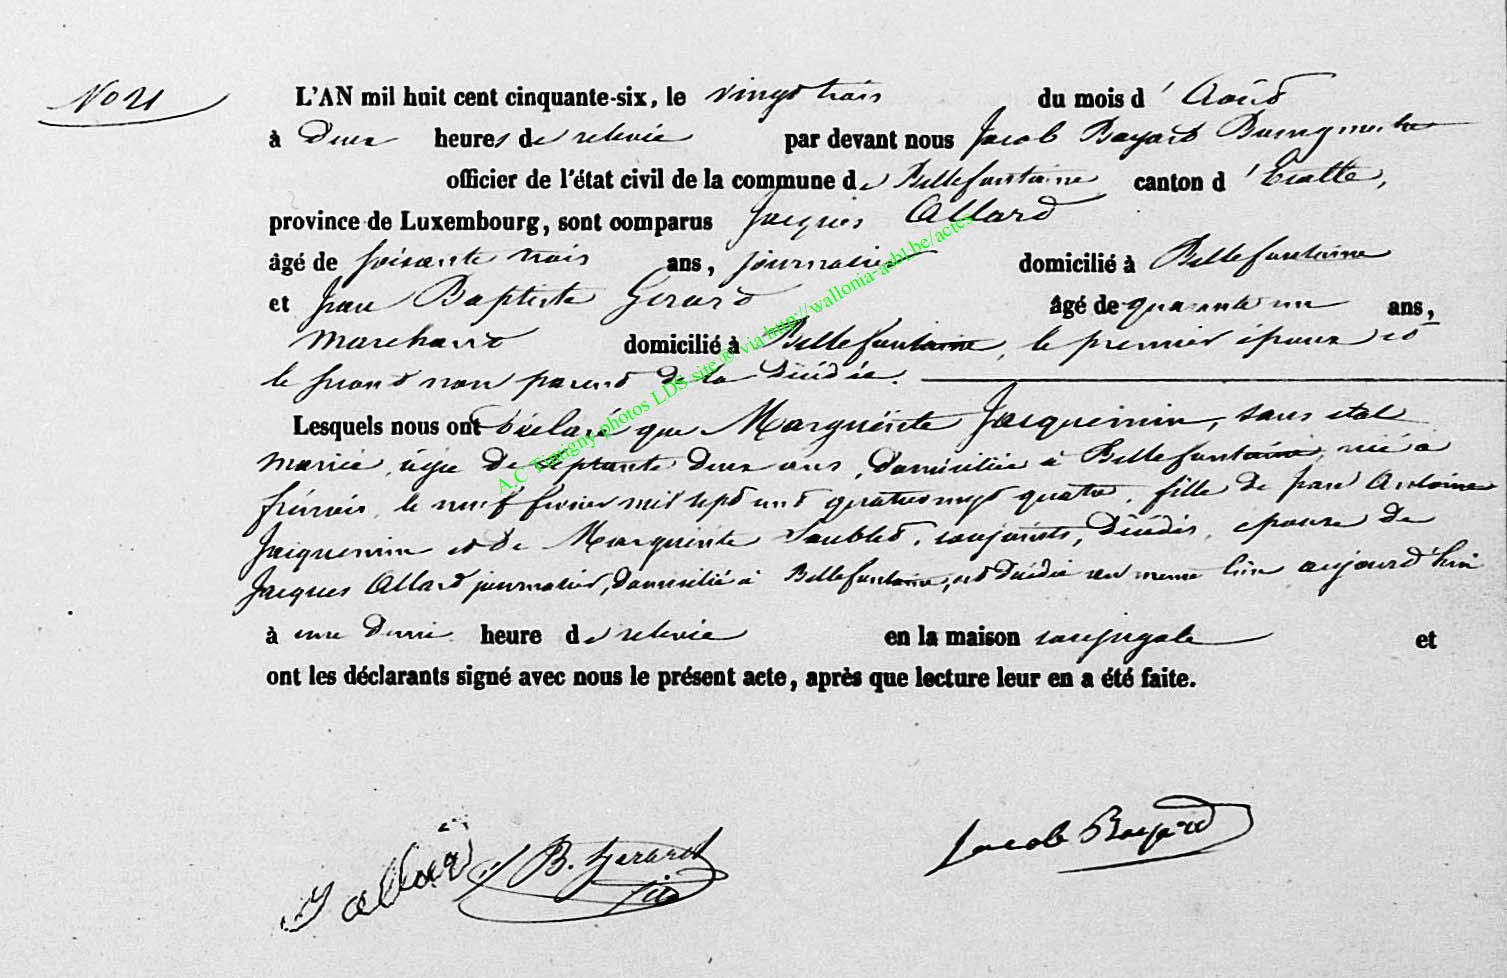 No 21
L'AN mil huit cent cinquante-six, le vingt trois du mois d'Août
à Deux heures de relevée par devant nous Jacob Bayard Bourgmestre
officier de l'état civil de la commune de Bellefontaine canton d'Etalle,
province de Luxembourg, sont comparus Jacques Allard
âgé de soixante trois ans, journalier domicilié à Bellefontaine
et Jean Baptiste Gerard âgé de quarante un ans,
marchand domicilié à Bellefontaine, le premier époux et
le second non parent de la Décédée.
Lesquels nous ont déclaré que Marguerite Jacquemin, sans etat
mariée, agée de septante deux ans, domiciliée à Bellefontaine, née à
le neuf février mil sept cent quatrevingt quatre, fille de Jean Antoine
Jacquemin et de Marguerite conjoints, Décédés, epouse de
Jacques Allard journalier, domicilié à Bellefontaine, est décédée au meme lieu aujourd'hui
à une demie heure de relevée en la maison conjugale et
ont les déclarants signé avec nous le présent acte, après que lecture leur en a été faite.
J allard J B. Gerard Jacob Bayard
A.C Tintigny photos LDS site ® via http://wallonia-asbl.be/actes